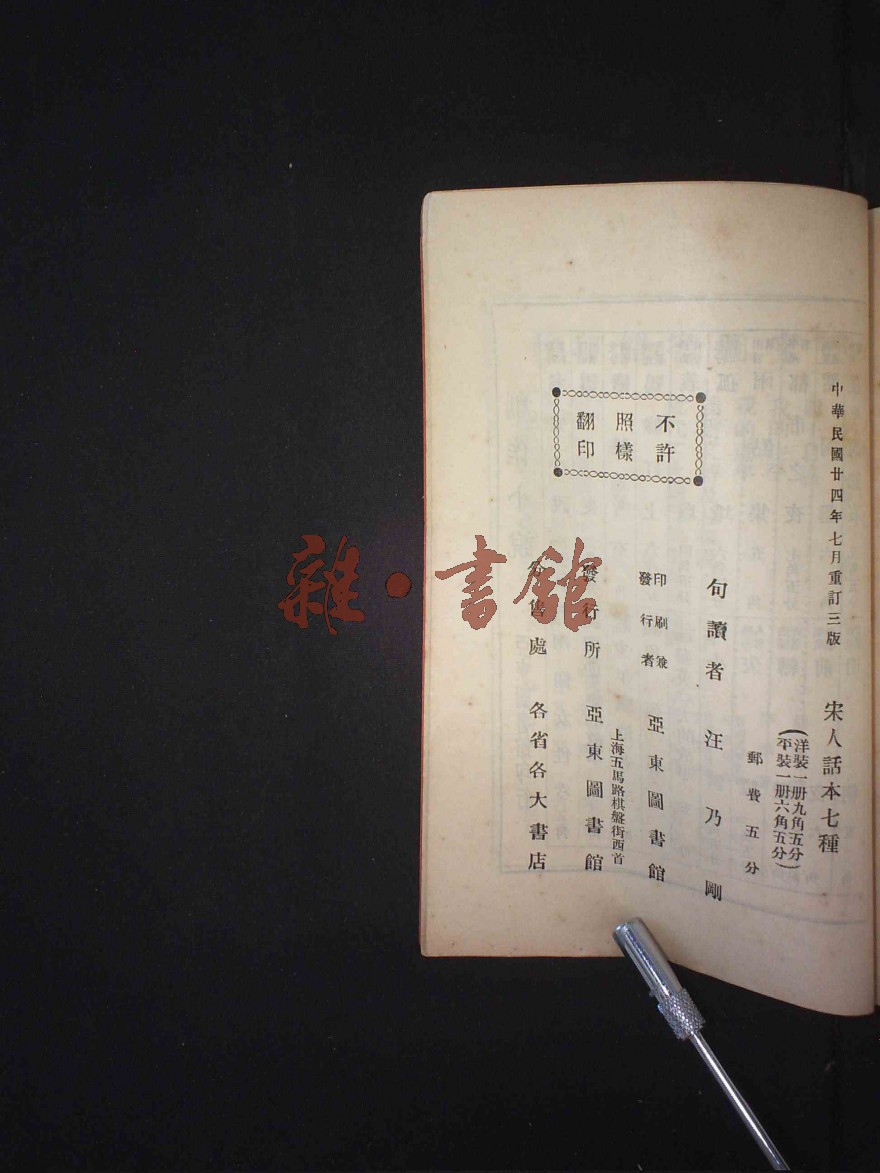 中華民國廿四年七月重訂三版
宋人話本七種
(洋裝一册九角五分
平裝一册六角五分)
郵費五分
句讀者 汪乃剛
印刷兼
發行者 亞東圖書館
上海五馬路棋盤街西首
發行所 亞東圖書館
分售處 各省各大書店
不許
照樣
翻印
雜·書館